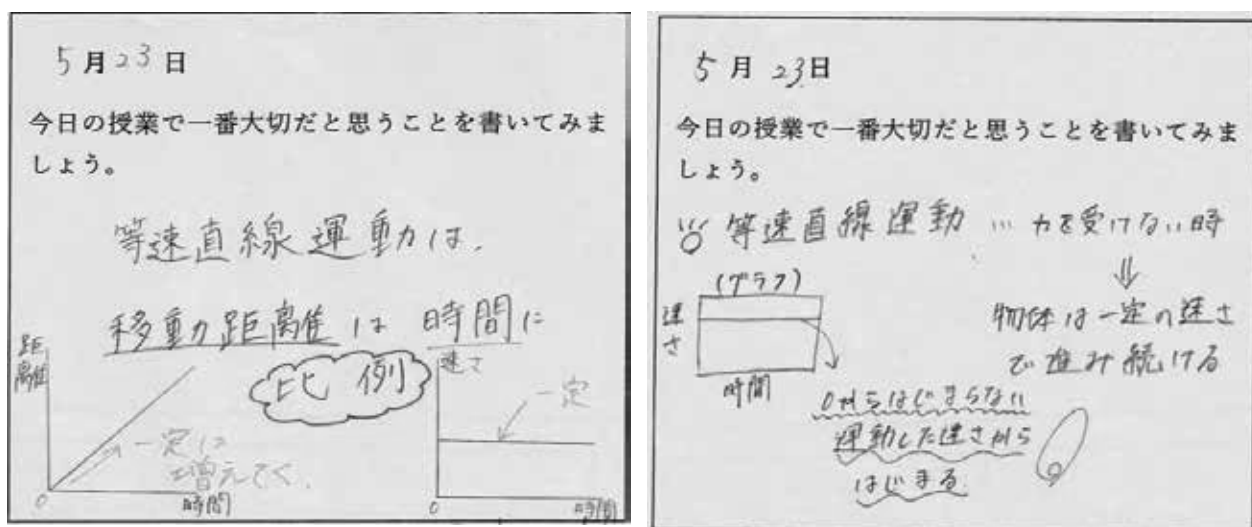 5月23日
今日の授業で一番大切だと思うことを書いてみま
しょう。
等速直線運動は、
移動距離は時間に
比例
距離
一定に
増えてく。
0
時間
速さ
一定
0
時間
5月23日
今日の授業で一番大切だと思うことを書いてみま
しょう。
等速直線運動…力を受けない時
⇓
物体は一定の速さ
で進み続ける
(グラフ)
速さ
時間
0からはじまらない
運動した速さから
はじまる